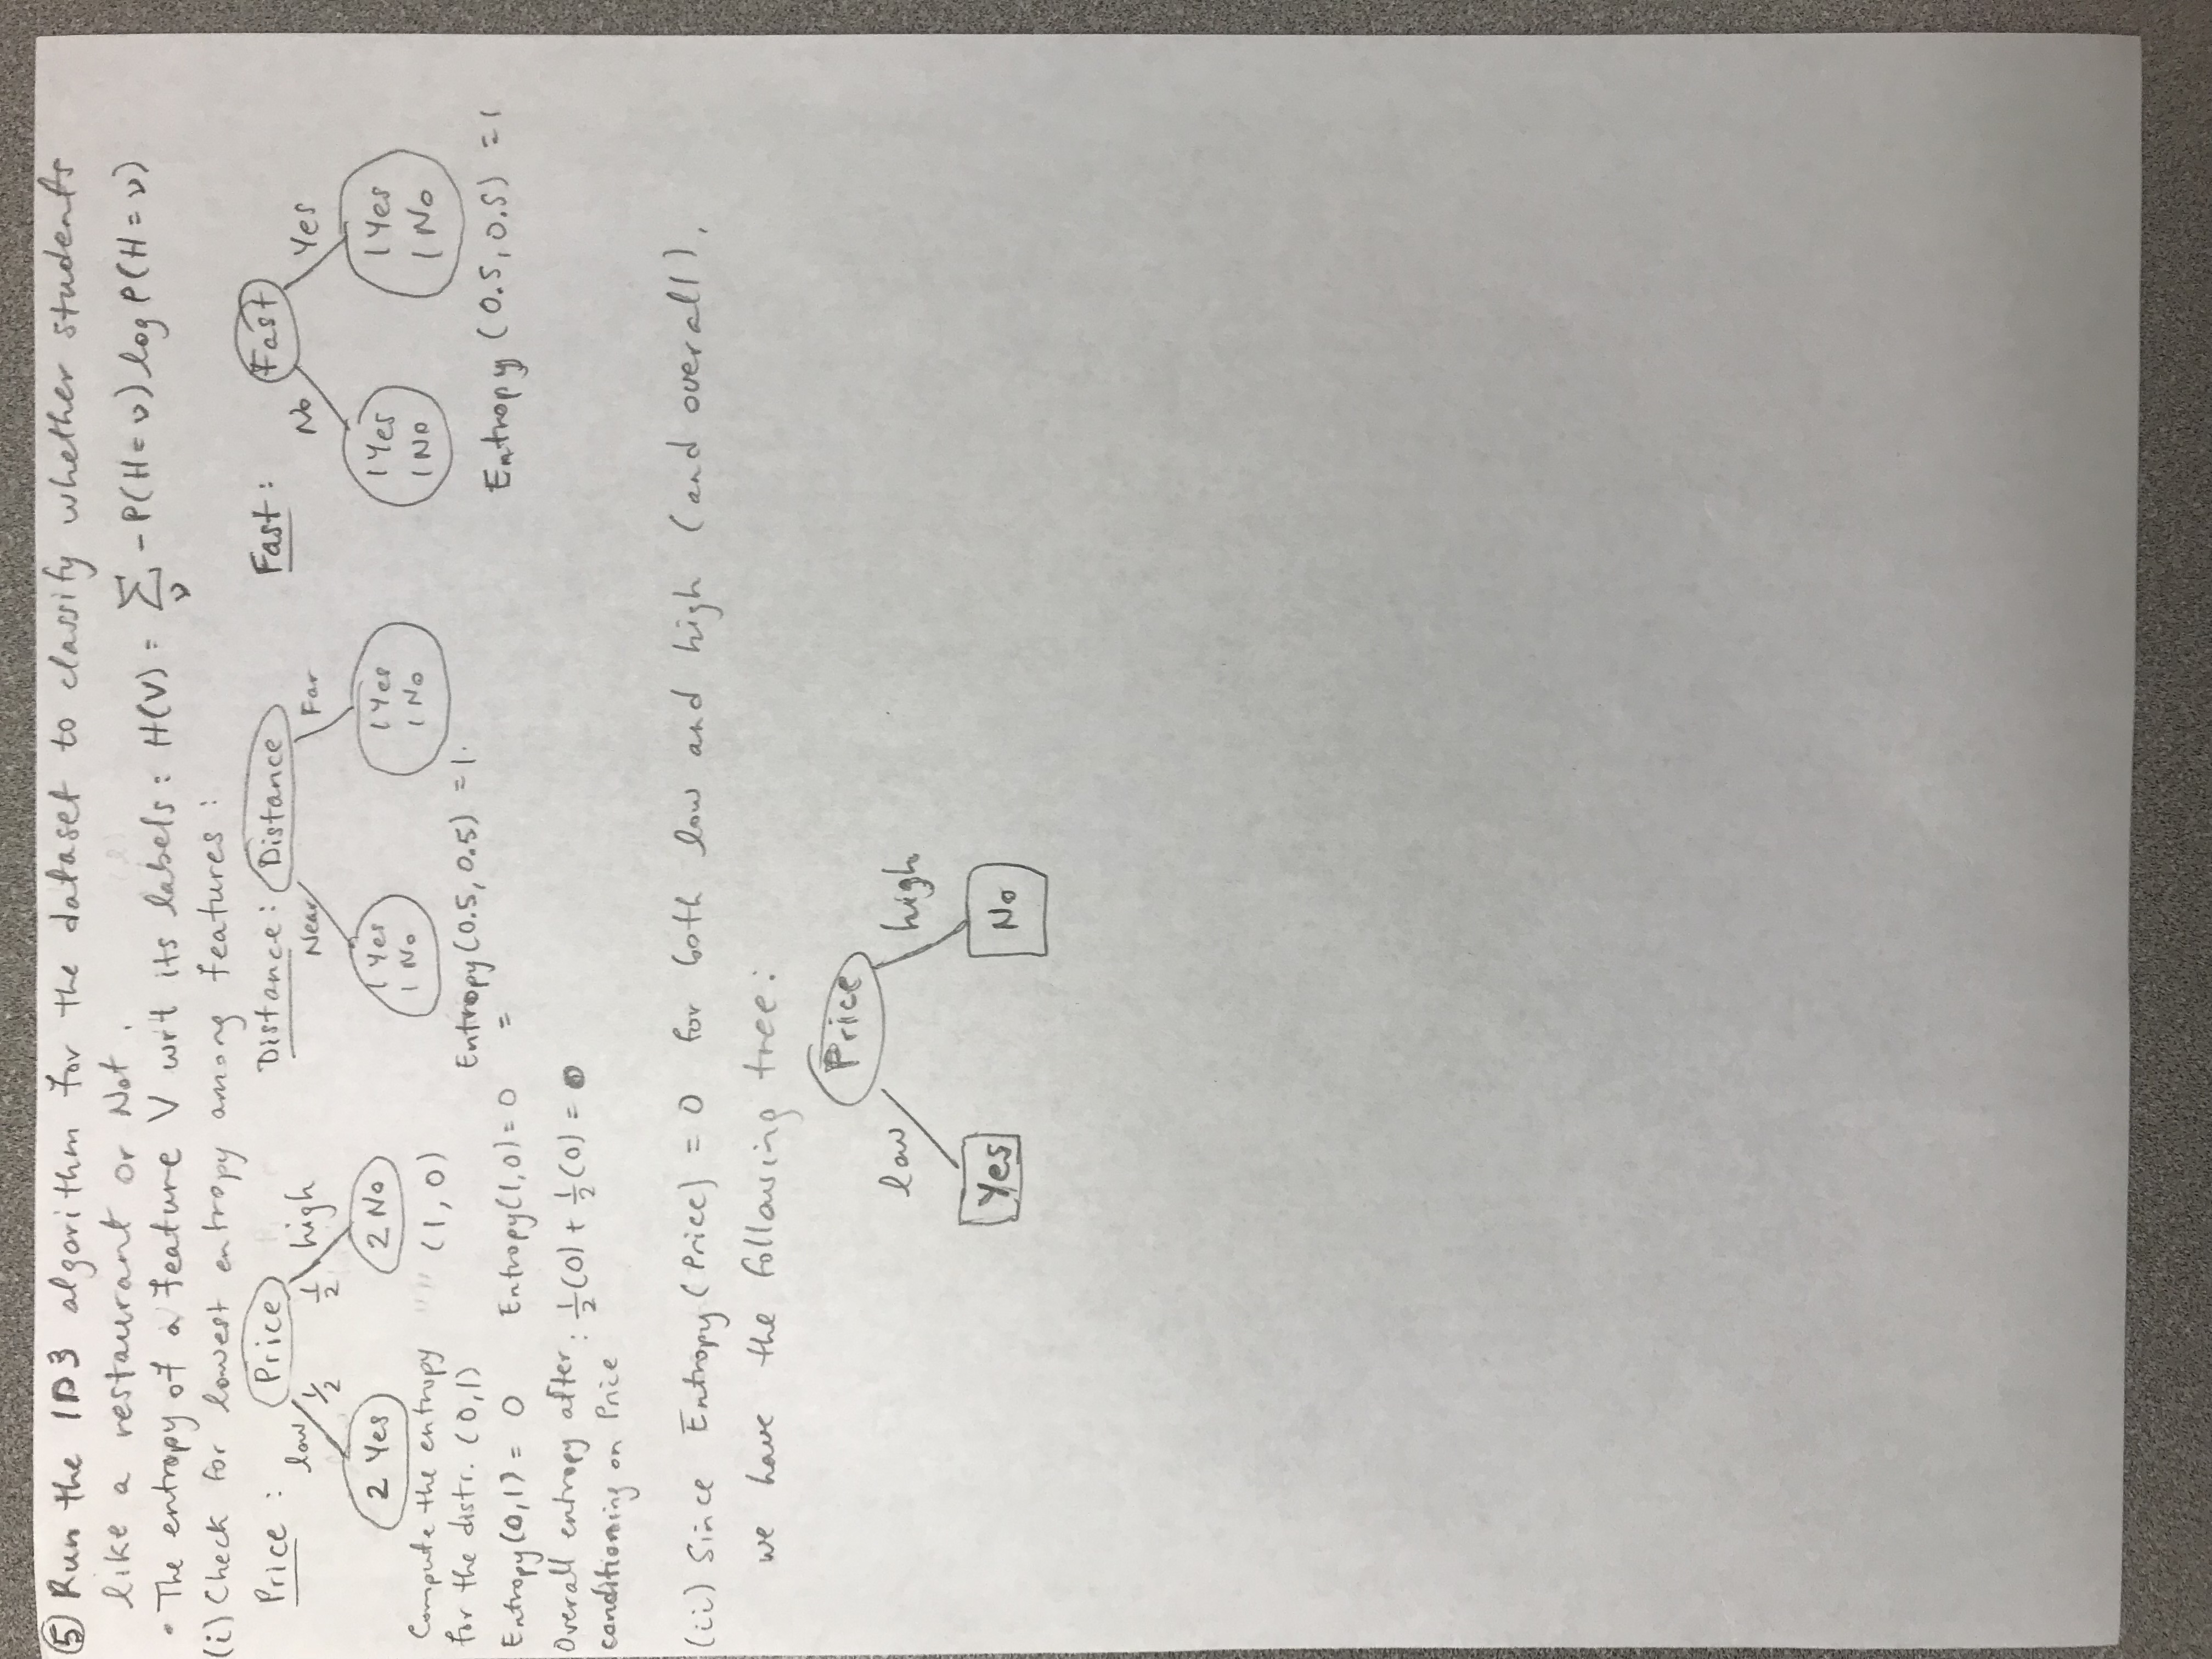 ⑤ Run the ID3 algorithm for the dataset to classify whether students
like a restaurant or Not.
• The entropy of a feature V wrt its labels: H(V) = Σ_v -P(H=v) log P(H=v)
(i) Check for lowest entropy among features:
Price: Price
low 1/2 1/2 high
2 Yes 2 No
Compute the entropy " " (1,0)
for the distr. (0,1)
Entropy(0,1) = 0 Entropy(1,0) = 0
Overall entropy after: 1/2(0) + 1/2(0) = 0
conditioning on Price
Distance: Distance
Near Far
1 Yes 1 Yes
1 No 1 No
Entropy(0.5, 0.5) = 1.
=
Fast: Fast
No Yes
1 Yes 1 Yes
1 NO 1 No
Entropy (0.5, 0.5) = 1
(ii) Since Entropy (Price) = 0 for both low and high (and overall),
we have the following tree:
Price
low high
Yes No